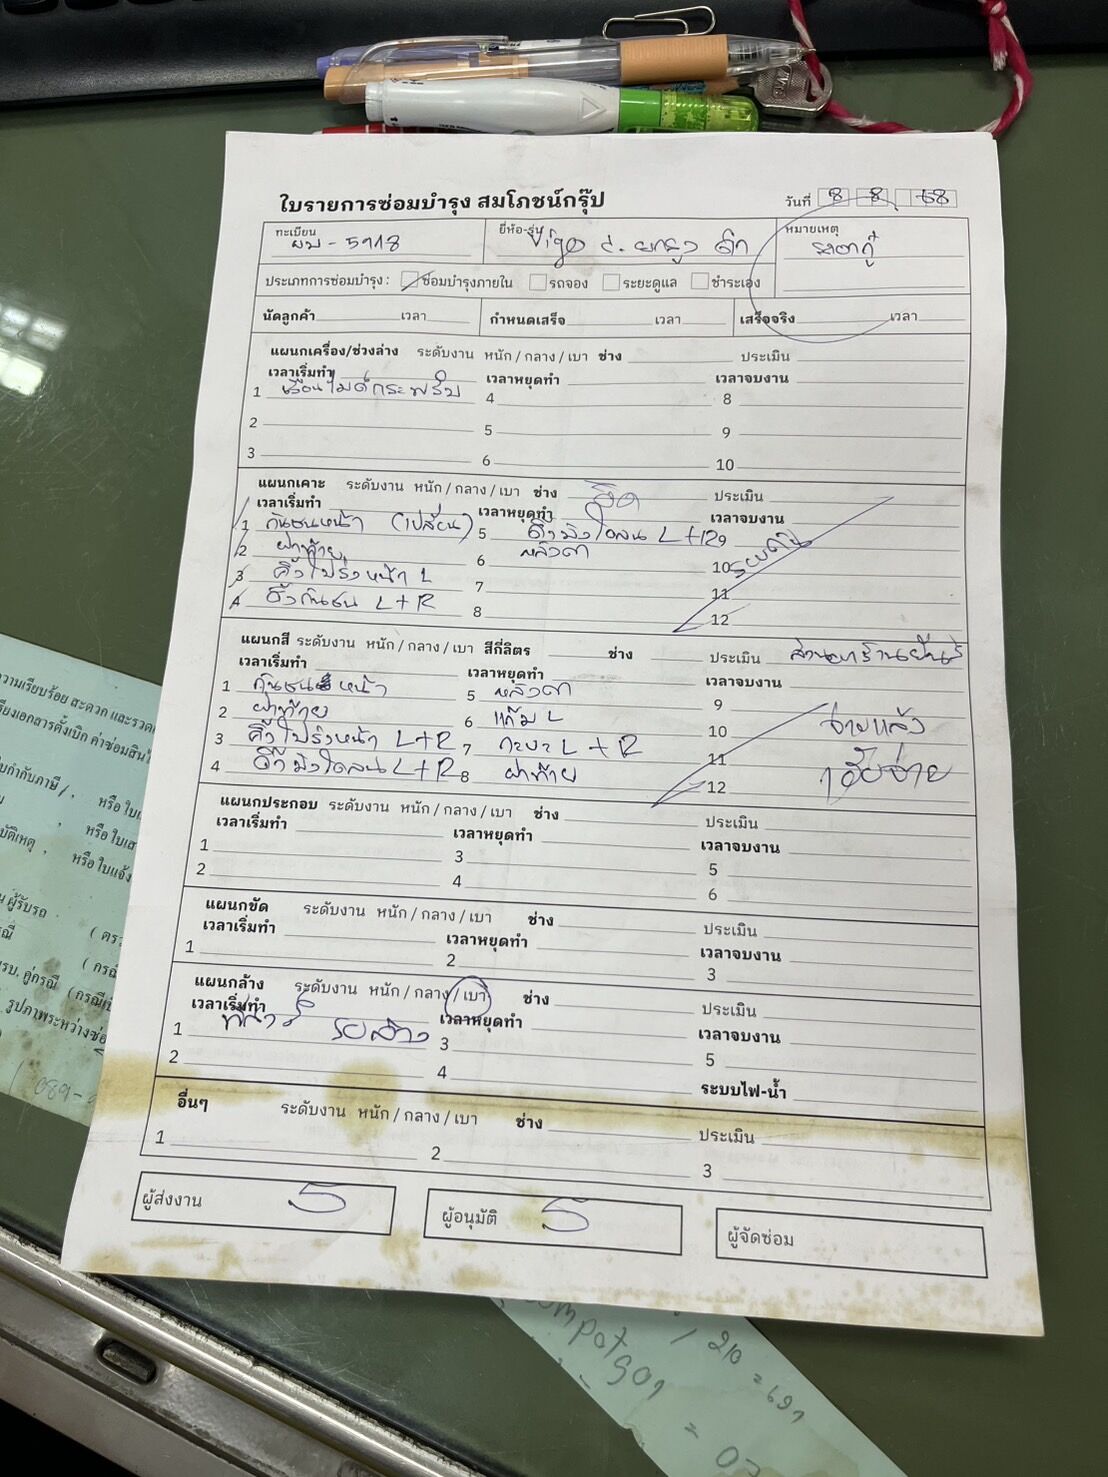 ใบรายการซ่อมบำรุง สมโภชน์กรุ๊ป
วันที่ 8 8 68
ทะเบียน ผม - 5918
ยี่ห้อ-รุ่น Vigo
หมายเหตุ
ประเภทการซ่อมบำรุง : ซ่อมบำรุงภายใน รถจอง ระยะดูแล ชำระเอง
นัดลูกค้า เวลา กำหนดเสร็จ เวลา เสร็จจริง เวลา
แผนกเครื่อง/ช่วงล่าง ระดับงาน หนัก / กลาง / เบา ช่าง ประเมิน
เวลาเริ่มทำ เวลาหยุดทำ เวลาจบงาน
1 เรือนไมล์กระพริบ 4 8
2 5 9
3 6 10
แผนกเคาะ ระดับงาน หนัก / กลาง / เบา ช่าง ประเมิน
เวลาเริ่มทำ เวลาหยุดทำ เวลาจบงาน
1 กันชนหน้า (เปลี่ยน) 5 คิ้วบังโคลน L + R 9
2 ฝาท้าย 6 หลังคา 10
3 คิ้วโป่งหน้า L 7 11
4 คิ้วกันชน L + R 8 12
แผนกสี ระดับงาน หนัก / กลาง / เบา สีกี่ลิตร ช่าง ประเมิน
เวลาเริ่มทำ เวลาหยุดทำ เวลาจบงาน
1 กันชนหน้า 5 หลังคา 9
2 ฝาท้าย 6 แก้ม L 10 จ่ายแล้ว
3 คิ้วโป่งหน้า L + R 7 กะบะ L + R 11
4 คิ้วบังโคลน L + R 8 ฝาท้าย 12
แผนกประกอบ ระดับงาน หนัก / กลาง / เบา ช่าง ประเมิน
เวลาเริ่มทำ เวลาหยุดทำ เวลาจบงาน
1 3 5
2 4 6
แผนกขัด ระดับงาน หนัก / กลาง / เบา ช่าง ประเมิน
เวลาเริ่มทำ เวลาหยุดทำ เวลาจบงาน
1 2 3
แผนกล้าง ระดับงาน หนัก / กลาง / เบา ช่าง ประเมิน
เวลาเริ่มทำ เวลาหยุดทำ เวลาจบงาน
1 รอล้าง 3 5
2 4 ระบบไฟ-น้ำ
อื่นๆ ระดับงาน หนัก / กลาง / เบา ช่าง ประเมิน
1 2 3
ผู้ส่งงาน ผู้อนุมัติ ผู้จัดซ่อม